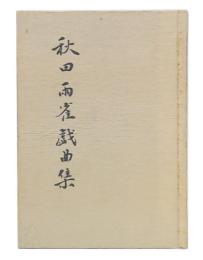 秋田雨雀戯曲集